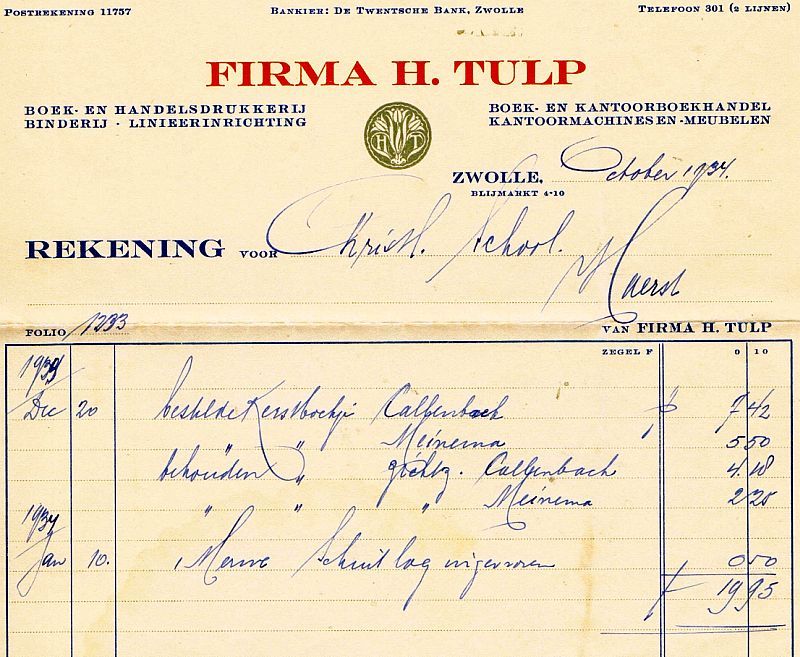 POSTREKENING 11757
BANKIER: DE TWENTSCHE BANK, ZWOLLE
TELEFOON 301 (2 LIJNEN)
FIRMA H. TULP
BOEK- EN HANDELSDRUKKERIJ
BINDERIJ · LINIEERINRICHTING
HT
BOEK- EN KANTOORBOEKHANDEL
KANTOORMACHINES EN -MEUBELEN
ZWOLLE, October 1934.
BLIJMARKT 4-10
REKENING VOOR Christl. School.
Haerst
FOLIO 1233
VAN FIRMA H. TULP
ZEGEL F 0 10
1933
Dec 20 bestelde Kerstboekjes Callenbach f 7 42
" " Meinema 5 50
behouden " Callenbach 4.18
" " " Meinema 2 25
1934
Jan 10. 0 50
f 19 95